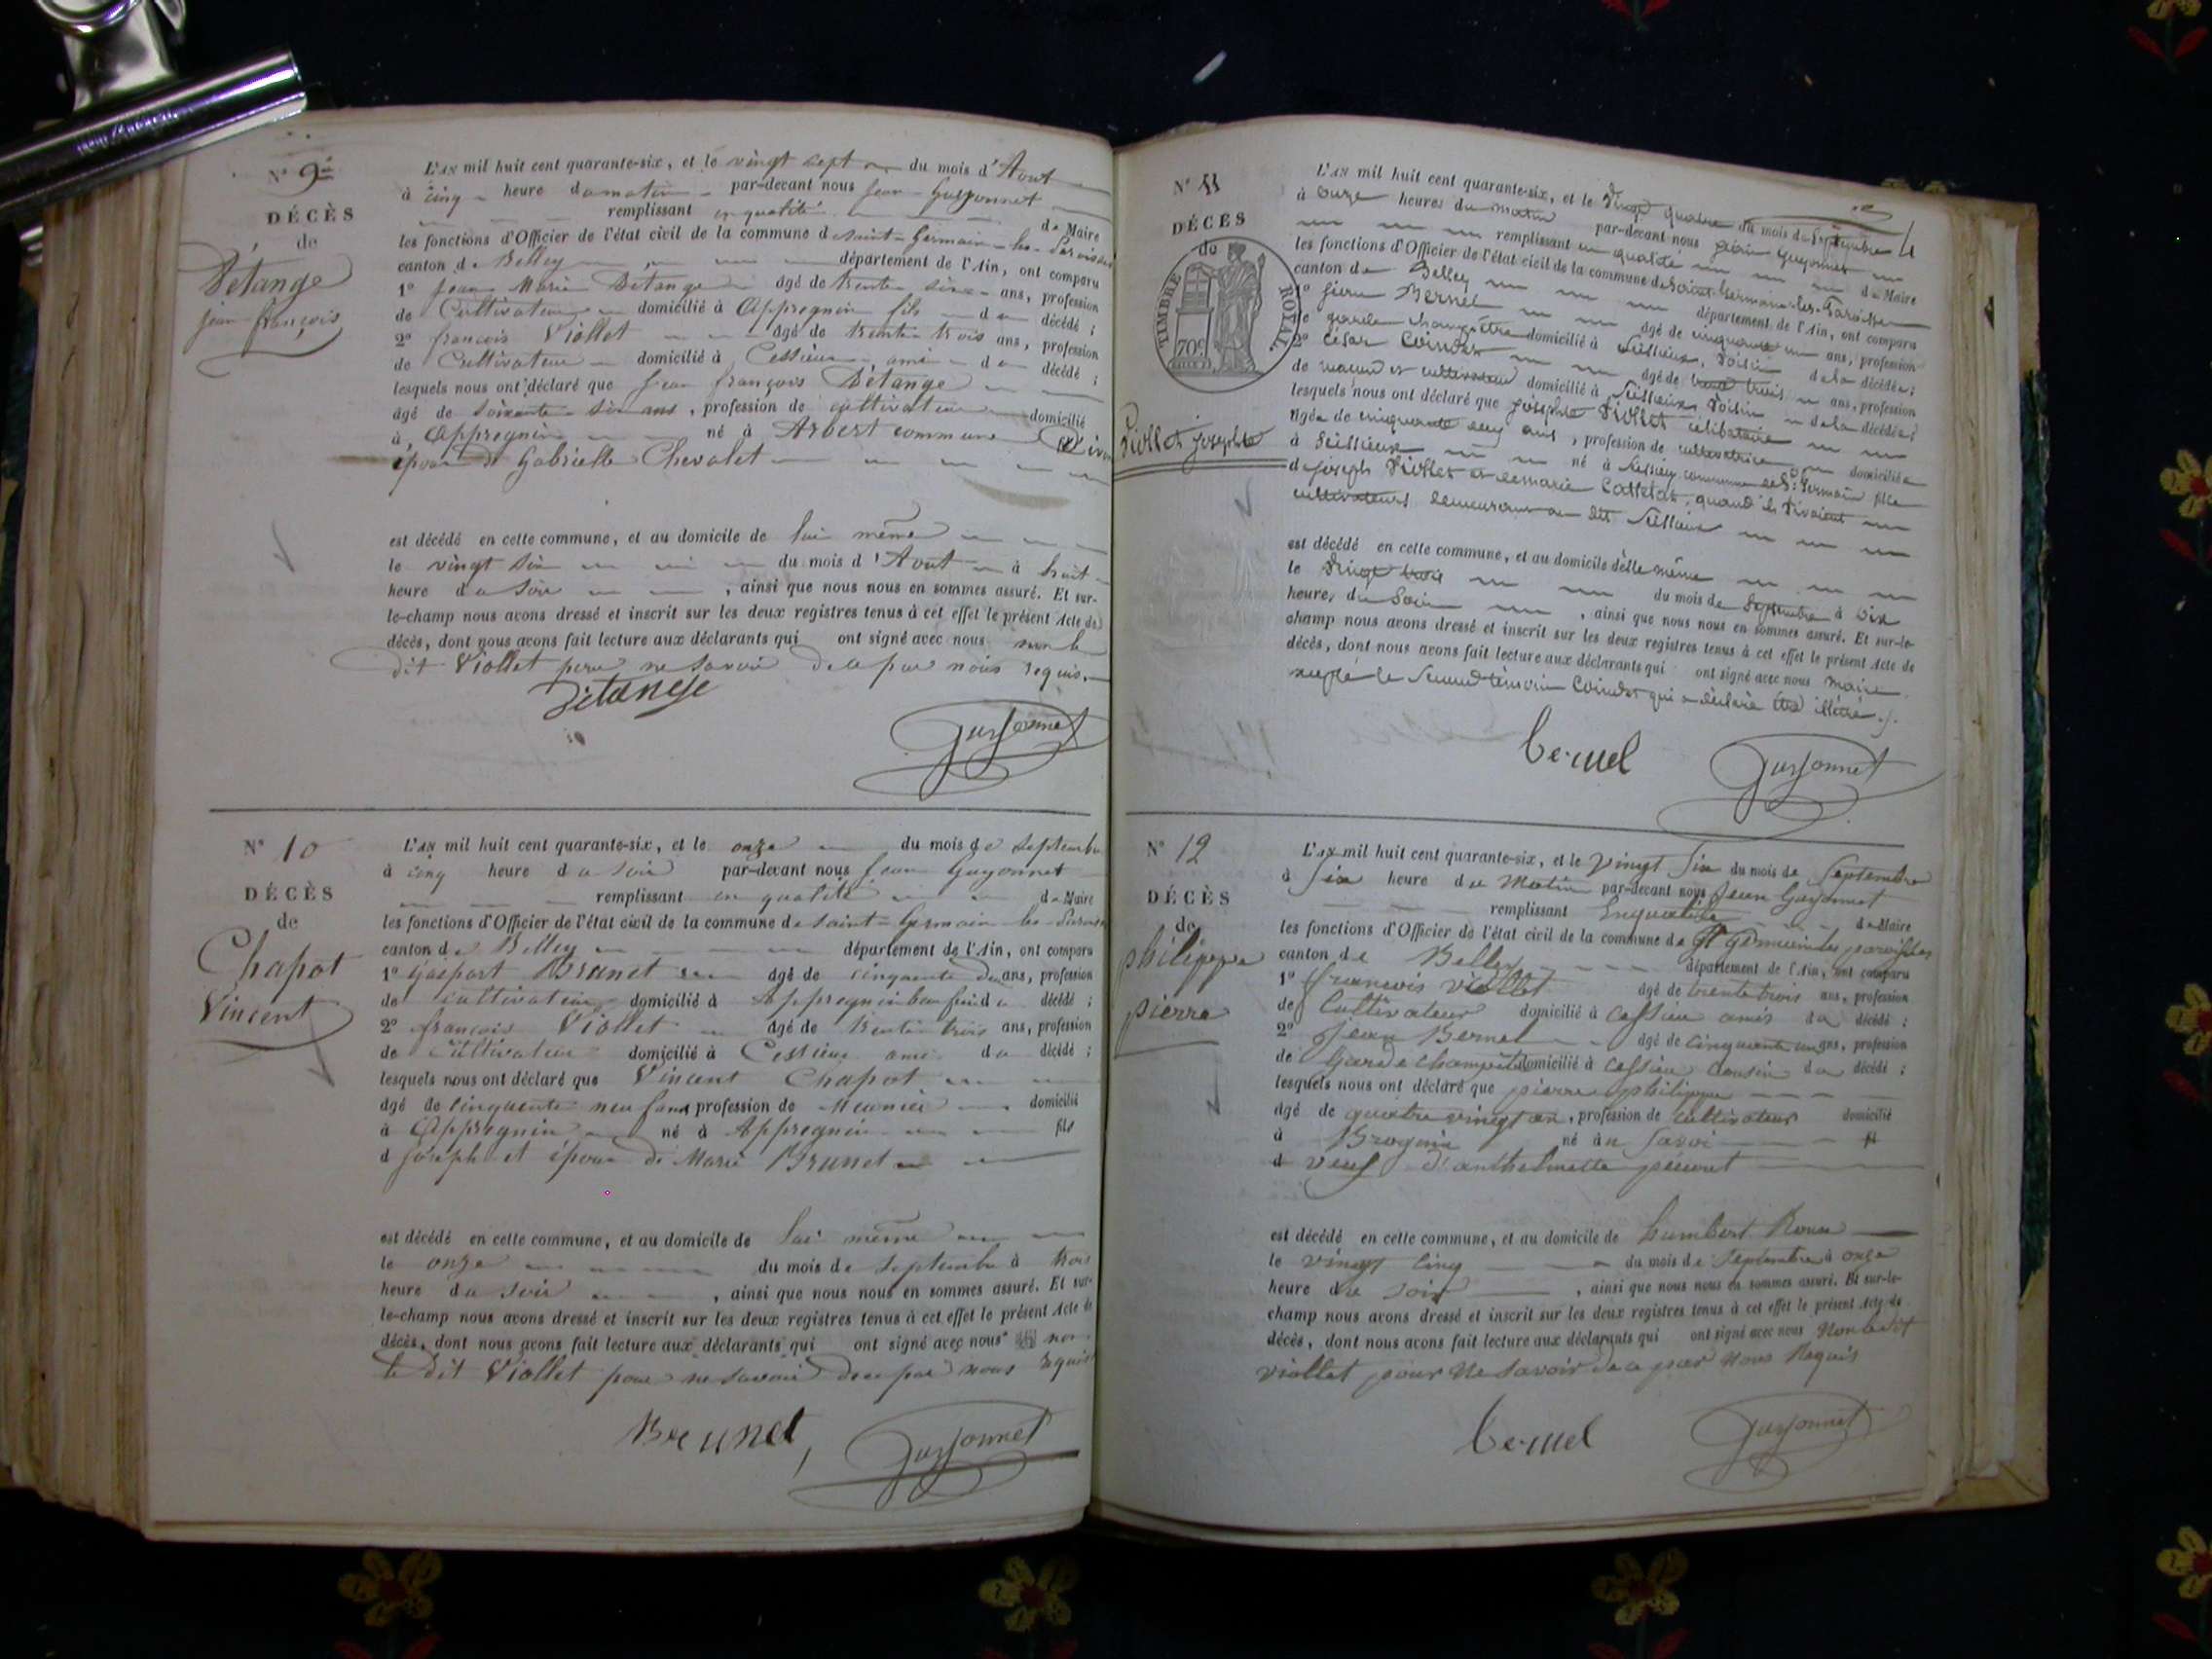 N° 9
DÉCÈS
de
Détange
jean françois
L'AN mil huit cent quarante-six, et le vingt sept du mois d'Aout
à cinq heure du matin par-devant nous Jean Guyonnet
remplissant en qualité de Maire
les fonctions d'Officier de l'état civil de la commune de Saint-Germain-les-Paroisses
canton de Belley département de l'Ain, ont comparu
1° Jean Marie Détange âgé de trente six ans, profession
de Cultivateur domicilié à Appregnin fils du décédé ;
2° françois Viollet âgé de trente trois ans, profession
de Cultivateur domicilié à Cessieux ami du décédé ;
lesquels nous ont déclaré que Jean françois Détange
âgé de soixante six ans, profession de cultivateur domicilié
à Appregnin né à Arbert commune
époux de Gabrielle Chevalet
est décédé en cette commune, et au domicile de lui même
le vingt six du mois d'Aout à huit
heure du soir , ainsi que nous nous en sommes assuré. Et sur-
le-champ nous avons dressé et inscrit sur les deux registres tenus à cet effet le présent Acte de
décès, dont nous avons fait lecture aux déclarants qui ont signé avec nous non le
dit Viollet pour ne savoir de ce par nous requis.
Détange
Guyonnet
N° 10
DÉCÈS
de
Chapot
Vincent
L'AN mil huit cent quarante-six, et le onze du mois de septembre
à cinq heure du soir par-devant nous Jean Guyonnet
remplissant en qualité de Maire
les fonctions d'Officier de l'état civil de la commune de Saint-Germain-les-Paroisses
canton de Belley département de l'Ain, ont comparu
1° Gaspart Brunet âgé de cinquante deux ans, profession
de cultivateur domicilié à Appregnin beau frère du décédé ;
2° françois Viollet âgé de trente trois ans, profession
de Cultivateur domicilié à Cessieux ami du décédé ;
lesquels nous ont déclaré que Vincent Chapot
âgé de cinquante neuf ans profession de Meunier domicilié
à Appregnin né à Appregnin fils
d Joseph et époux de Marie Brunet
est décédé en cette commune, et au domicile de lui même
le onze du mois de septembre à trois
heure du soir , ainsi que nous nous en sommes assuré. Et sur-
le-champ nous avons dressé et inscrit sur les deux registres tenus à cet effet le présent Acte de
décès, dont nous avons fait lecture aux déclarants qui ont signé avec nous non
le dit Viollet pour ne savoir de ce par nous requis
Brunet,
Guyonnet
4
N° 11
DÉCÈS
de
TIMBRE ROYAL
70c
Viollet josephte
L'AN mil huit cent quarante-six, et le Vingt quatre du mois de Septembre
à onze heures du matin par-devant nous Jean Guyonnet
remplissant en qualité de Maire
les fonctions d'Officier de l'état civil de la commune de Saint-Germain-les-Paroisses
canton de Belley département de l'Ain, ont comparu
1° pierre Bernel âgé de cinquante un ans, profession
de garde champêtre domicilié à Sessieux, Voisin de la décédée ;
2° César Coindet âgé de trente trois ans, profession
de maçon et cultivateur domicilié à Sessieux Voisin de la décédée ;
lesquels nous ont déclaré que josephte Viollet célibataire
âgée de cinquante ans, profession de cultivatrice domiciliée
à Seissieux né à Sessieux commune de St Germain fille
de joseph Viollet et de marie Cattelat, quand ils vivaient
cultivateurs demeurant au dit Sessieux
est décédé en cette commune, et au domicile d'elle même
le Vingt trois du mois de Septembre à dix
heures du Soir , ainsi que nous nous en sommes assuré. Et sur-le-
champ nous avons dressé et inscrit sur les deux registres tenus à cet effet le présent Acte de
décès, dont nous avons fait lecture aux déclarants qui ont signé avec nous maire
excepté le Second témoin Coindet qui a déclaré être illétré.
bernel
Guyonnet
N° 12
DÉCÈS
de
philippe
pierre
L'AN mil huit cent quarante-six, et le Vingt Six du mois de Septembre
à Six heure du Matin par-devant nous Jean Guyonnet
remplissant Enqualité de Maire
les fonctions d'Officier de l'état civil de la commune de St Germain les paroisses
canton de Belley département de l'Ain, ont comparu
1° francois viollet âgé de trente trois ans, profession
de Cultivateur domicilié à Cessieu amis du décédé ;
2° Jean Bernel âgé de Cinquante un ans, profession
de Garde Champetre domicilié à Cessieu cousin du décédé ;
lesquels nous ont déclaré que pierre philippe
âgé de quatre vingt an, profession de Cultivateur domicilié
à Brognin né à en Savoi fil
d veuf d'anthelmette
est décédé en cette commune, et au domicile de humbert Roux
le vingt Cinq du mois de Septembre à onze
heure du soir , ainsi que nous nous en sommes assuré. Et sur-le-
champ nous avons dressé et inscrit sur les deux registres tenus à cet effet le présent Acte de
décès, dont nous avons fait lecture aux déclarants qui ont signé avec nous Non ledit
viollet pour Ne Savoir de ce par Nous Requis
bernel
Guyonnet